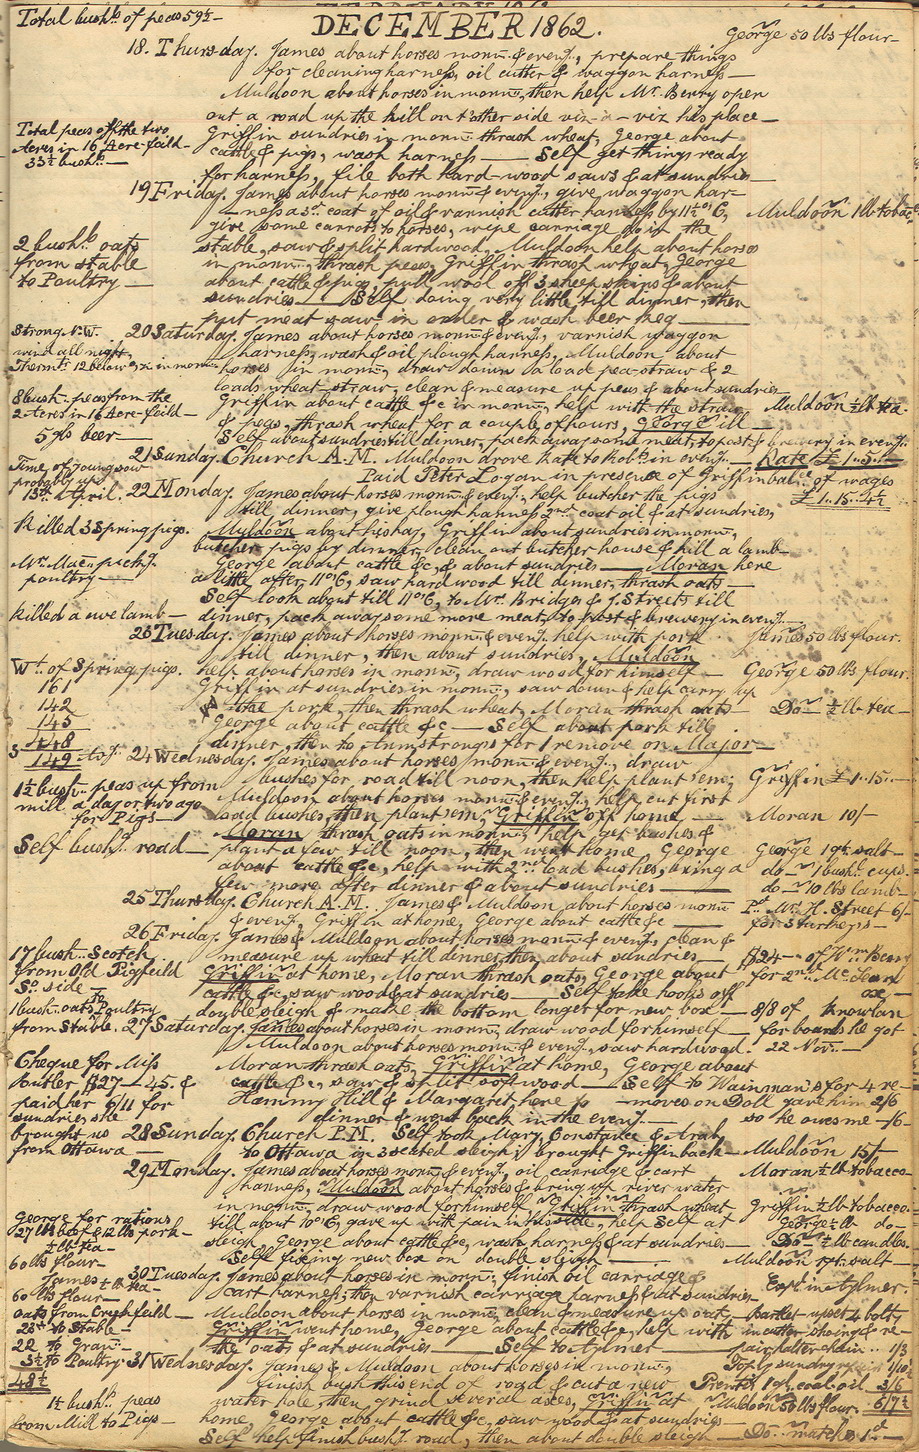 Total bushls. of peas 59½—
DECEMBER 1862.
George 50 lbs flour—
18. Thursday. James about horses morng. & eveng., prepare things
for cleaning harness, oil cutter & waggon harness—
Muldoon about horses in morng., then help Mr. Berry open
out a road up the hill on t'other side viz—a—viz his place—
Total peas off the two
Acres in 16 Acre-feild—
33½ bushls.—
Griffin sundries in morng. thrash wheat, George about
cattle & pigs, wash harness — Self get things ready
for harness, file both hard-wood saws & at sundries—
19 Friday. James about horses morng. & eveng., give waggon har-
-ness a 3rd. coat of oil & varnish cutter harness by 11½ o'C,
Muldoon 1 lb tobacco
give some carrots to horses, wipe carriage do in the
2 bushls. oats
from stable
to Poultry—
stable, saw & split hardwood, Muldoon help about horses
in morng., thrash peas, Griffin thrash wheat, George
about cattle & pigs, pull wool off 3 sheep skins & about
sundries — Self doing very little till dinner, then
put meat saw in order & wash beer keg —
Strong N.W.
wind all night,
Thermtr. 12 below in morng.
20 Saturday. James about horses morng. & eveng., varnish waggon
harness, wash & oil plough harness, Muldoon about
horses in morng., draw down a load pea-straw & 2
loads wheat straw, clean & measure up peas & about sundries
8 bush. peas from the
2 Acres in 16 Acre-feild—
5 gls beer—
Griffin about cattle &c in morng., help with the straw
Muldoon ½ lb tea.
& peas, thrash wheat for a couple of hours, George ill
Self about sundries till dinner, pack away some meat, to post & brewery in eveng.
21 Sunday. Church A.M. Muldoon drove Kate to Robts. in eveng.—
Kate £1..5..
Time, of young sow
probably up
13th. April.
Paid Peter Logan in presence of Griffin balce. of wages
£1..15..4½
22 Monday. James about horses morng. & eveng., help butcher the pigs
till dinner, give plough harness 2nd. coat oil & at sundries,
Killed 3 Spring pigs.
Muldoon about his hay, Griffin about sundries in morng.,
butcher pigs by dinner, clean out butcher house & kill a lamb—
Mrs. Mac— pickg.
poultry—
George about cattle &c, & about sundries — Moran here
a little after 11 o'C, saw hard wood till dinner, thrash oats—
Self look about till 11 o'C, to Mr. Bridges & J. Streets till
Killed a ewe lamb—
dinner, pack away some more meat, to post & brewery in eveng.—
23 Tuesday. James about horses morng. & eveng. help with pork
James 50 lbs flour.
till dinner, then about sundries, Muldoon
Wt. of Spring pigs.
161
142
145
448
3 149
help about horses in morng., draw wood for himself—
George 50 lbs flour.
Griffin at sundries in morng., saw down & help carry up
the pork, then thrash wheat, Moran thrash oats—
Do— ½ lb tea—
George about cattle &c — Self about pork till
dinner, then to Armstrongs for 1 remove on Major—
24 Wednesday. James about horses morng. & eveng., draw
bushes for road till noon, then help plant 'em;
Griffin £1..15..—
1½ bush. peas up from
mill a day or two ago
for Pigs—
Muldoon about horses morng. & eveng., help cut first
load bushes, then plant 'em, Griffin off home, —
Moran 10/—
Moran thrash oats in morng., help get bushes &
Self bushg. road—
plant a few till noon, then went home, George
George 19 lbs salt—
about cattle &c, help with 2nd. load bushes, bring a
do— 1 bush. cups.
few more after dinner & about sundries —
do— 10 lbs lamb—
25 Thursday. Church A.M. James & Muldoon about horses morng.
Pd. Mr. H. Street 6/—
& eveng., Griffin at home, George about cattle &c —
for 3 turkeys—
26 Friday. James & Muldoon about horses morng. & eveng., clean &
17 bush. Scotch
from Old Pigfeild
So. side—
measure up wheat till dinner, then about sundries—
$24— of Wm. Berry
Griffin at home, Moran thrash oats, George about
for 2nd. McLean
ox—
cattle &c, saw wood & at sundries — Self take hooks off
double sleigh & make the bottom longer for new box—
8/8 of Knowlan
1 bush. oats to Poultry
from Stable.
27 Saturday. James about horses in morng., draw wood for himself—
for boards he got
22 Novr.—
Muldoon about horses morng. & eveng., saw hardwood.
Cheque for Miss
Butler $27—45. &
paid her 6/11 for
sundries she
brought us
from Ottawa—
Moran thrash oats, Griffin at home, George about
cattle &c, saw & split soft wood — Self to Wainman's for 4 re-
Hammy Hill & Margaret here to —moves on Doll gave him 2/6
dinner & went back in the eveng.—
so he owes me —/6.
28 Sunday. Church P.M. Self took Mary, Constance & Araby
to Ottawa in 3 seated sleigh; brought Griffin back—
Muldoon 15/—
29 Monday. James about horses morng. & eveng., oil carriage & cart
Moran ½ lb tobacco—
harness, Muldoon about horses & bring up river water
in morng., draw wood for himself, Griffin thrash wheat
Griffin ½ lb tobacco.
George for rations
27 lbs beef & 12 lbs pork—
½ lb tea—
60 lbs flour—
till about 10 o'C, gave up with pain in his side, help Self at
George ½ lb do—
sleigh, George about cattle &c, wash harness & at sundries—
Do— ½ lb candles.
Self fixing new box on double sleigh —
Muldoon 1 qt. salt—
James ½ lb tea—
60 lbs flour—
30 Tuesday. James about horses in morng., finish oil carriage &
Expd. in Aylmer.
cart harness, then varnish carriage harness & at sundries
oats from Cregh feild—
22 to Stable—
22 to Gran:
3½ to Poultry
48½
Muldoon about horses in morng., clean & measure up oats,
Bartlet—upset 4 bolts
Griffin went home, George about cattle &c, help with
in cutter shoing & re-
the oats & at sundries — Self to Aylmer —
pair halter chain.. 1/3
31 Wednesday. James & Muldoon about horses in morng.,
1/10
finish bush this end of road & cut a new
Prentis 1 gl. coal oil. 3/6
1½ bushls. peas
from Mill to Pigs—
water hole, then grind several axes, Griffin at
Muldoon 50 lbs flour.
6/7½
home, George about cattle &c, saw wood & at sundries
Self help finish bushg. road, then about double sleigh—
Do— matches 1d.—